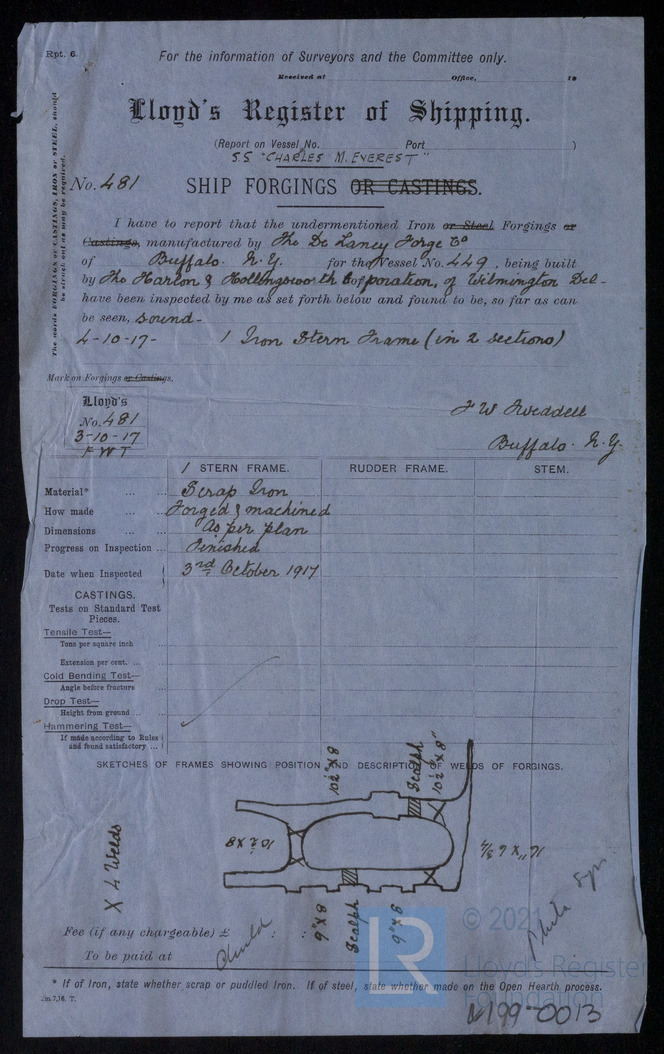 Rpt. 6.
For the information of Surveyors and the Committee only.
Received at Office, 19
Lloyd's Register of Shipping.
(Report on Vessel No. Port )
SS "CHARLES M. EVEREST"
No. 481
SHIP FORGINGS OR CASTINGS.
The words FORGINGS or CASTINGS, IRON or STEEL, should
be struck out as may be required.
I have to report that the undermentioned Iron or Steel Forgings or
Castings, manufactured by The De Laney Forge Co
of Buffalo. N.Y. for the Vessel No. 449, being built
by The Harlan & Hollingsworth Corporation, of Wilmington Del-
have been inspected by me as set forth below and found to be, so far as can
be seen, sound-
4-10-17- 1 Iron Stern Frame (in 2 sections)
Mark on Forgings or Castings.
Lloyd's
No. 481
3-10-17
FWT
F W Tweddell
Buffalo. N.Y.
1 STERN FRAME. RUDDER FRAME. STEM.
Material* ... ... Scrap Iron
How made ... ... Forged & machined
Dimensions ... ... As per plan
Progress on Inspection ... Finished
Date when Inspected 3rd October 1917
CASTINGS.
Tests on Standard Test
Pieces.
Tensile Test—
Tons per square inch
Extension per cent. ...
Cold Bending Test—
Angle before fracture
Drop Test—
Height from ground ...
Hammering Test—
If made according to Rules
and found satisfactory ...
SKETCHES OF FRAMES SHOWING POSITION AND DESCRIPTION OF WELDS OF FORGINGS.
10½" X 8
Scalph
10½" X 8"
10½ X 8
11" X 6 3/4
X 4 Welds
9" X 8
Scalph
9" X 6
Fee (if any chargeable) £ : :
To be paid at
© 2021
LR
Lloyd's Register
Foundation
* If of Iron, state whether scrap or puddled Iron. If of steel, state whether made on the Open Hearth process.
2m.7,16. T.
W199-0013